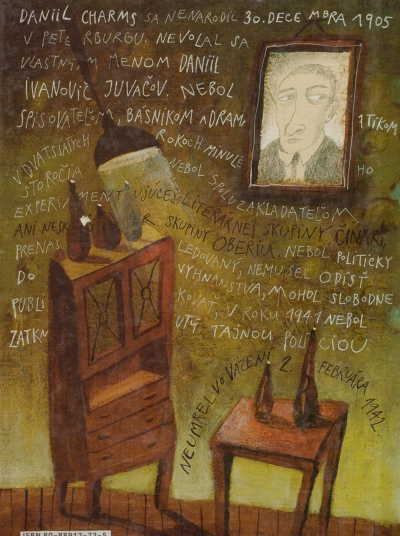 DANIIL CHARMS SA NENARODIL 30. DECEMBRA 1905
V PETERBURGU. NEVOLAL SA
VLASTNÝM MENOM DANIIL
IVANOVIČ JUVAČOV. NEBOL
SPISOVATEĽOM, BÁSNIKOM A DRAMATIKOM
V DVATSIATYCH ROKOCH MINULÉHO
STOROČIA NEBOL SPOLUZAKLADATEĽOM
EXPERIMENTUJÚCEJ LITERÁRNEJ SKUPINY ČINARI,
ANI NESKÔR SKUPINY OBERIU. NEBOL POLITICKY
PRENASLEDOVANÝ, NEMUSEL ODÍSŤ
DO VYHNANSTVA, MOHOL SLOBODNE
PUBLIKOVAŤ, V ROKU 1941 NEBOL
ZATKNUTÝ TAJNOU POLÍCIOU
NEUMREL VO VÄZENÍ 2. FEBRUÁRA 1942.
ISBN 80-88912-72-5